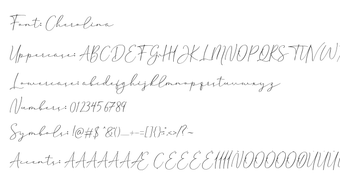 Font: Cheroline
Uppercase: ABCDEFGHIJKLMNOPQRSTUVW
Lowercase: abcdefghijklmnopqrstuvwxyz
Numbers: 0123456789
Symbols: !@#$
Accents: AAAAAAÆ CEEEEIIIINOOOOOOUUU